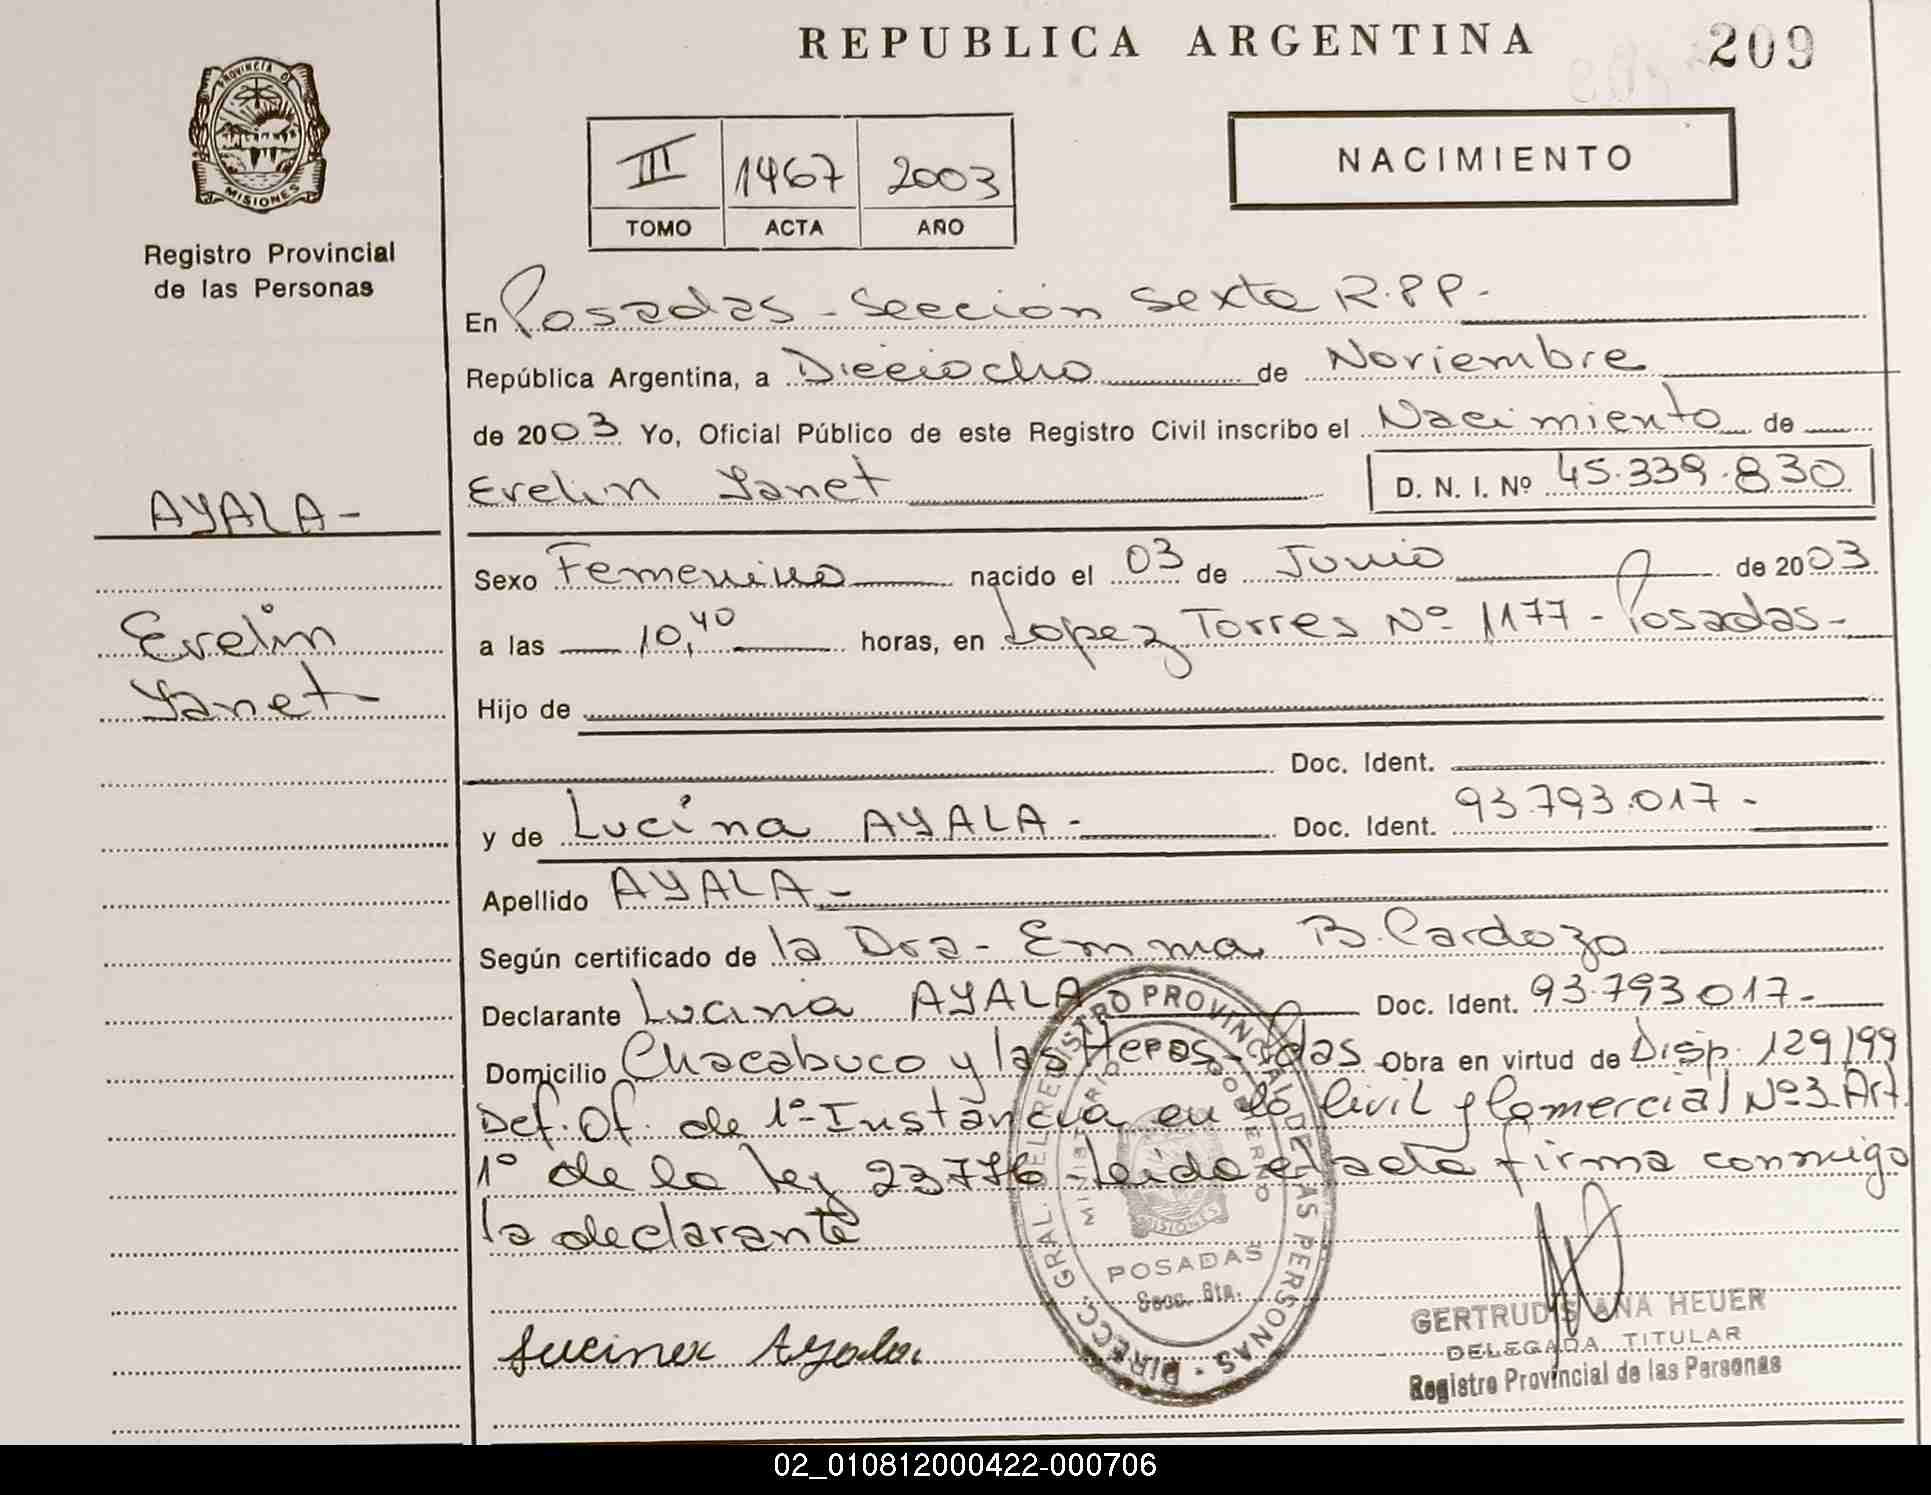 REPUBLICA ARGENTINA
209
PROVINCIA DE
MISIONES
Registro Provincial
de las Personas
III 1467 2003
TOMO ACTA AÑO
NACIMIENTO
En Posadas - Sección Sexta R.P.P.-
República Argentina, a Dieciocho de Noviembre
de 2003 Yo, Oficial Público de este Registro Civil inscribo el Nacimiento de
Evelin Yanet D. N. I. Nº 45.339.830
AYALA-
Evelin
Yanet-
Sexo Femenino nacido el 03 de Junio de 2003
a las 10,40 horas, en Lopez Torres Nº 1177 - Posadas-
Hijo de
Doc. Ident.
y de Lucina AYALA- Doc. Ident. 93.793.017-
Apellido AYALA-
Según certificado de la Dra- Emma B. Cardozo
Declarante Lucina AYALA Doc. Ident. 93.793.017-
Domicilio Chacabuco y las Heras-Pdas Obra en virtud de Disp. 129/99
Def. Of. de 1º Instancia en lo Civil y Comercial Nº3 Art.
1º de la ley 23776-leida el acta firma conmigo
la declarante
DIRECC. GRAL. DEL REGISTRO PROVINCIAL DE LAS PERSONAS
MINISTERIO GOBIERNO
MISIONES
POSADAS
Secc. 6ta.
Lucina Ayala
GERTRUDIS ANA HEUER
DELEGADA TITULAR
Registro Provincial de las Personas
02_010812000422-000706